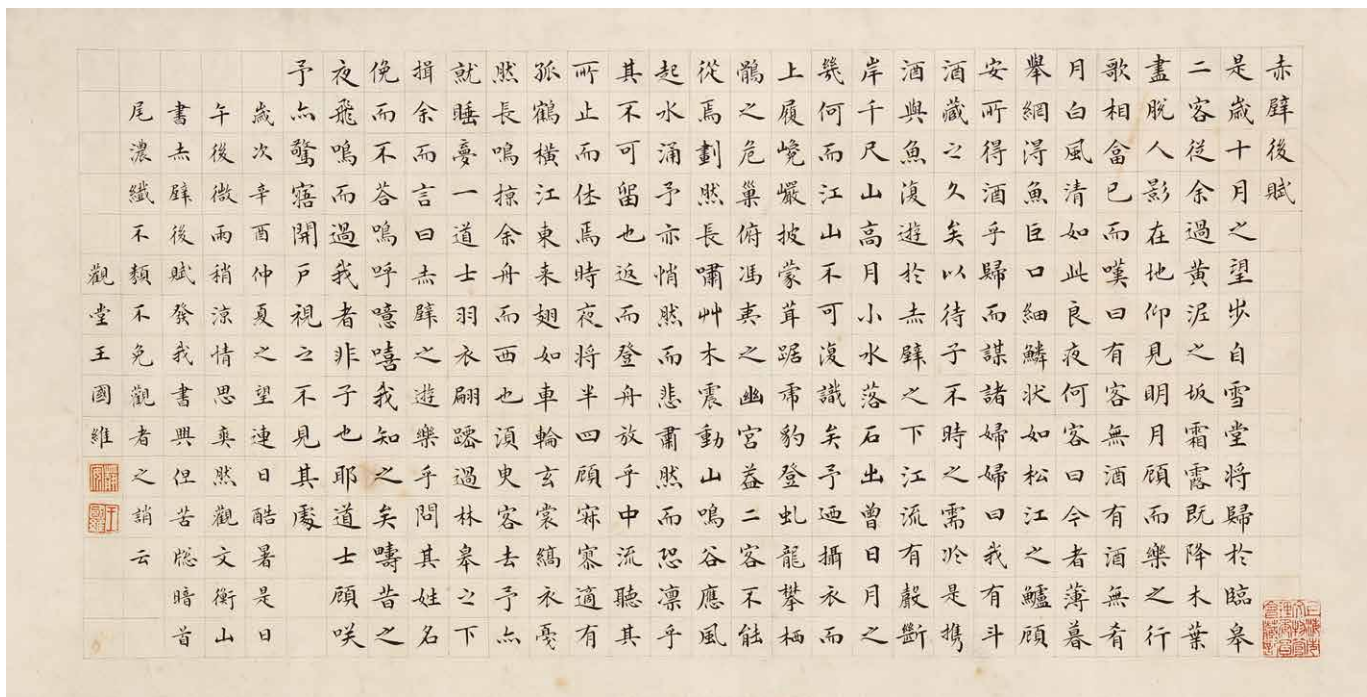 赤壁後賦
是歲十月之望步自雪堂將歸於臨皋
二客從余過黃泥之坂霜露既降木葉
盡脫人影在地仰見明月顧而樂之行
歌相畣已而嘆曰有客無酒有酒無肴
月白風清如此良夜何客曰今者薄暮
舉網得魚巨口細鱗狀如松江之鱸顧
安所得酒乎歸而謀諸婦婦曰我有斗
酒藏之久矣以待子不時之需於是携
酒與魚復遊於赤壁之下江流有聲斷
岸千尺山高月小水落石出曾日月之
幾何而江山不可復識矣予迺攝衣而
上履巉巖披蒙茸踞虎豹登虬龍攀栖
鶻之危巢俯馮夷之幽宮葢二客不能
從焉劃然長嘯艸木震動山鳴谷應風
起水涌予亦悄然而悲肅然而恐凛乎
其不可留也返而登舟放乎中流聽其
所止而休焉時夜将半四顧寂寥適有
孤鶴橫江東来翅如車輪玄裳縞衣戛
然長鳴掠余舟而西也須臾客去予亦
就睡夢一道士羽衣翩躚過林皋之下
揖余而言曰赤壁之遊樂乎問其姓名
俛而不荅嗚呼噫嘻我知之矣疇昔之
夜飛鳴而過我者非子也耶道士顧咲
予亦驚寤開戶視之不見其處
歲次辛酉仲夏之望連日酷暑是日
午後微雨稍涼情思爽然觀文衡山
書赤壁後賦發我書興但苦牕暗首
尾濃纖不類不免觀者之誚云
觀堂王國維